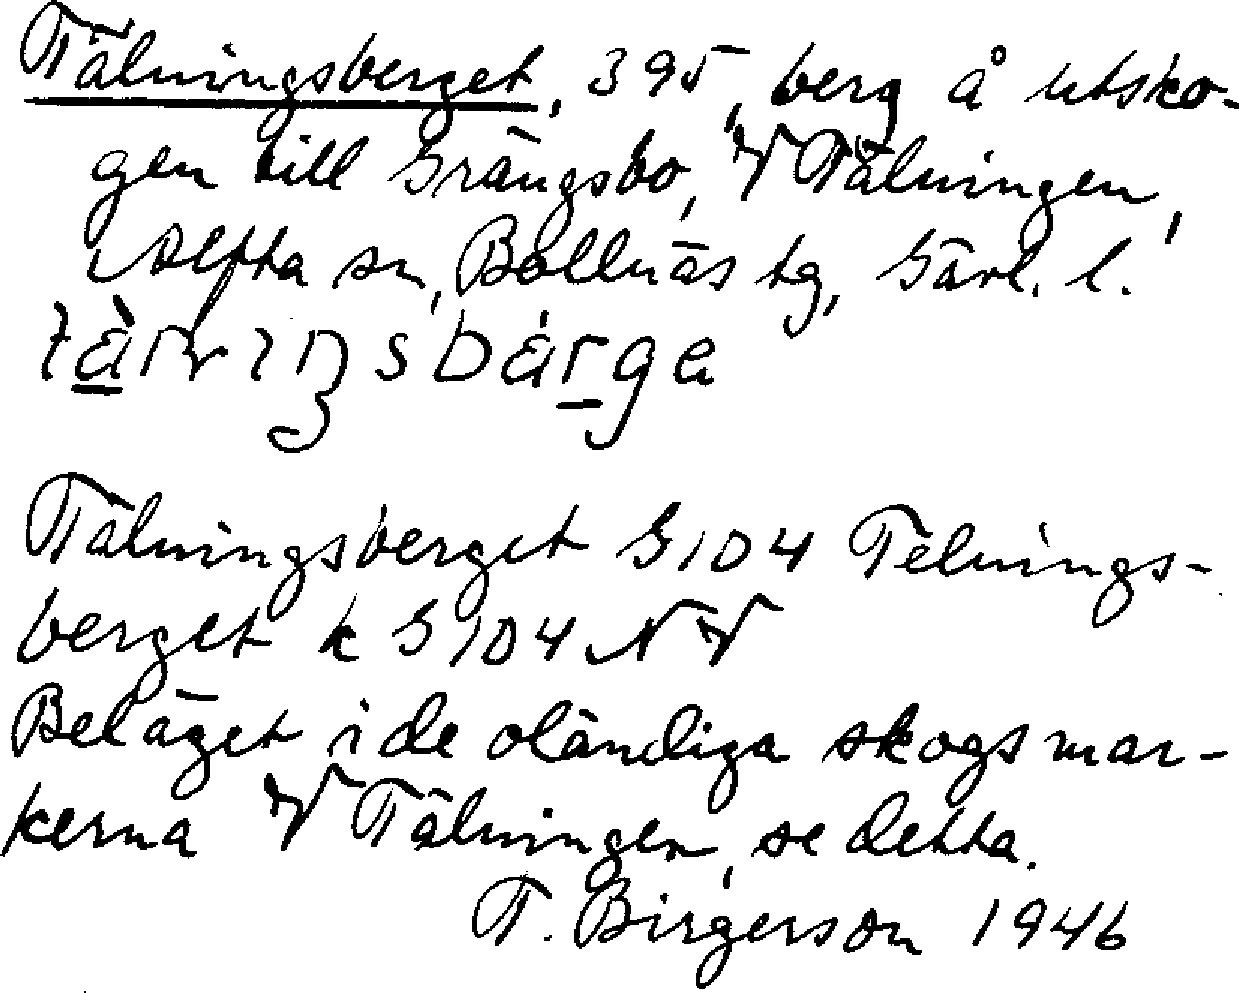 Tälningsberget, 395, berg å utsko-
gen till Grängsbo, V Tälningen,
Alfta sn, Bollnäs tg, Gävl. l.
Tälningsberget G104 Telnings-
berget k G104 NV
Beläget i de oländiga skogsmar-
kerna V Tälningen, se detta.
T. Birgerson 1946